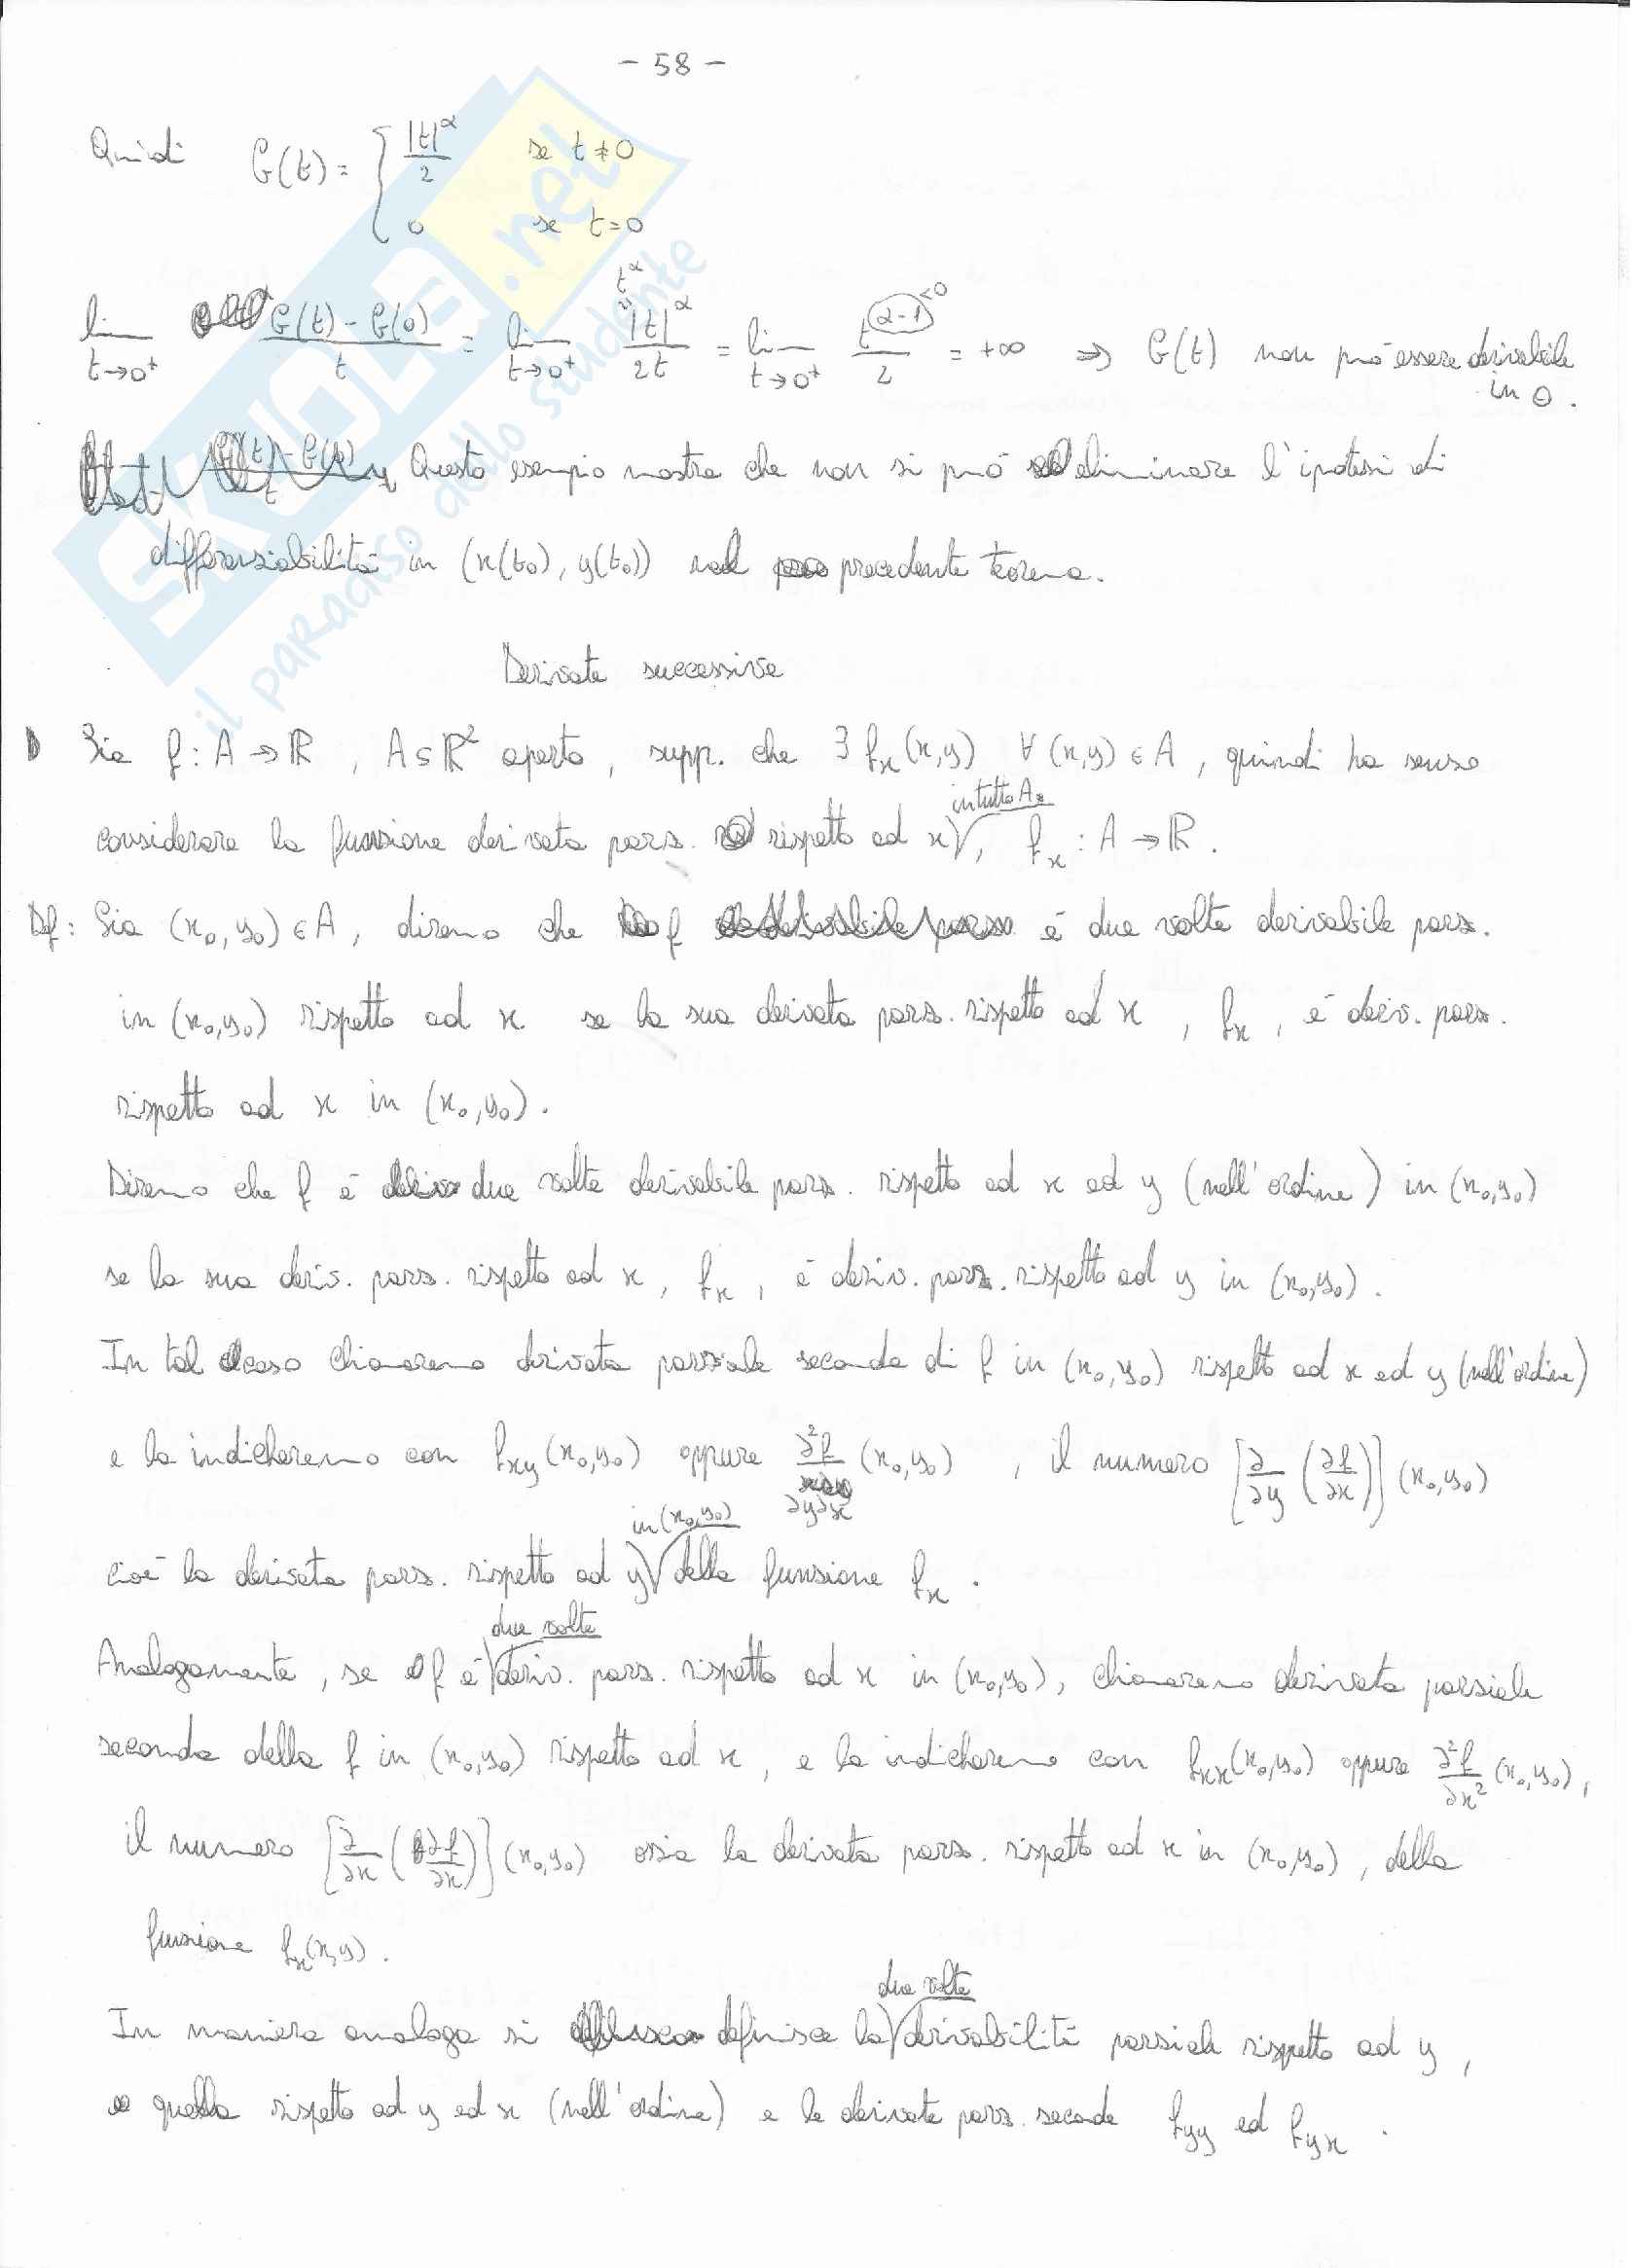 - 58 -
Quindi G(t) = { |t|^α / 2 se t ≠ 0
0 se t = 0
lim t→0+ (G(t) - G(0)) / t = lim t→0+ |t|^α / 2t = lim t→0+ t^(α-1) / 2 = +∞ ⇒ G(t) non può essere derivabile
t^α
<0
in 0.
Questo esempio mostra che non si può eliminare l'ipotesi di
differenziabilità in (x(t₀), y(t₀)) nel precedente teorema.
Derivate successive
Sia f : A → ℝ, A ⊆ ℝ² aperto, supp. che ∃ fx(x,y) ∀ (x,y) ∈ A, quindi ha senso
considerare la funzione derivata parz. rispetto ad x in tutto A, fx : A → ℝ.
Df: Sia (x₀,y₀) ∈ A, diremo che f è due volte derivabile parz.
in (x₀,y₀) rispetto ad x se la sua derivata parz. rispetto ad x, fx, è deriv. parz.
rispetto ad x in (x₀,y₀).
Diremo che f è due volte derivabile parz. rispetto ad x ed y (nell'ordine) in (x₀,y₀)
se la sua deriv. parz. rispetto ad x, fx, è deriv. parz. rispetto ad y in (x₀,y₀).
In tal caso chiameremo derivata parziale seconda di f in (x₀,y₀) rispetto ad x ed y (nell'ordine)
e la indicheremo con fxy(x₀,y₀) oppure ∂²f/∂y∂x (x₀,y₀), il numero [∂/∂y (∂f/∂x)] (x₀,y₀)
cioè la derivata parz. rispetto ad y in (x₀,y₀) della funzione fx.
Analogamente, se f è due volte deriv. parz. rispetto ad x in (x₀,y₀), chiameremo derivata parziale
seconda della f in (x₀,y₀) rispetto ad x, e la indicheremo con fxx(x₀,y₀) oppure ∂²f/∂x² (x₀,y₀),
il numero [∂/∂x (∂f/∂x)] (x₀,y₀) ossia la derivata parz. rispetto ad x in (x₀,y₀), della
funzione fx(x,y).
In maniera analoga si definisce la due volte derivabilità parziale rispetto ad y,
e quella rispetto ad y ed x (nell'ordine) e le derivate parz. seconde fyy ed fyx.
SKUOLA.net
il paradiso dello studente